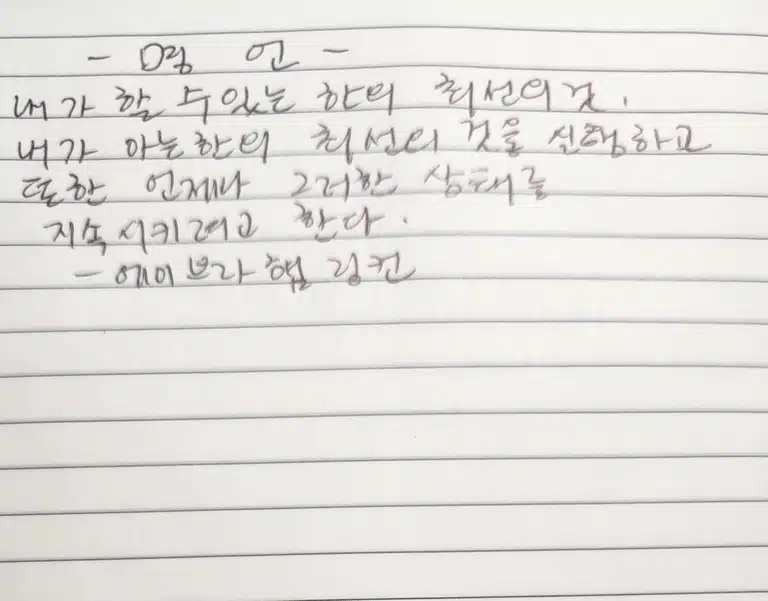 - 명 언 -
내가 할 수있는 한의 최선의것.
내가 아는한의 최선의 것을 실행하고
또한 언제나 그러한 상태를
지속시키려고 한다.
- 에이브라햄 링컨